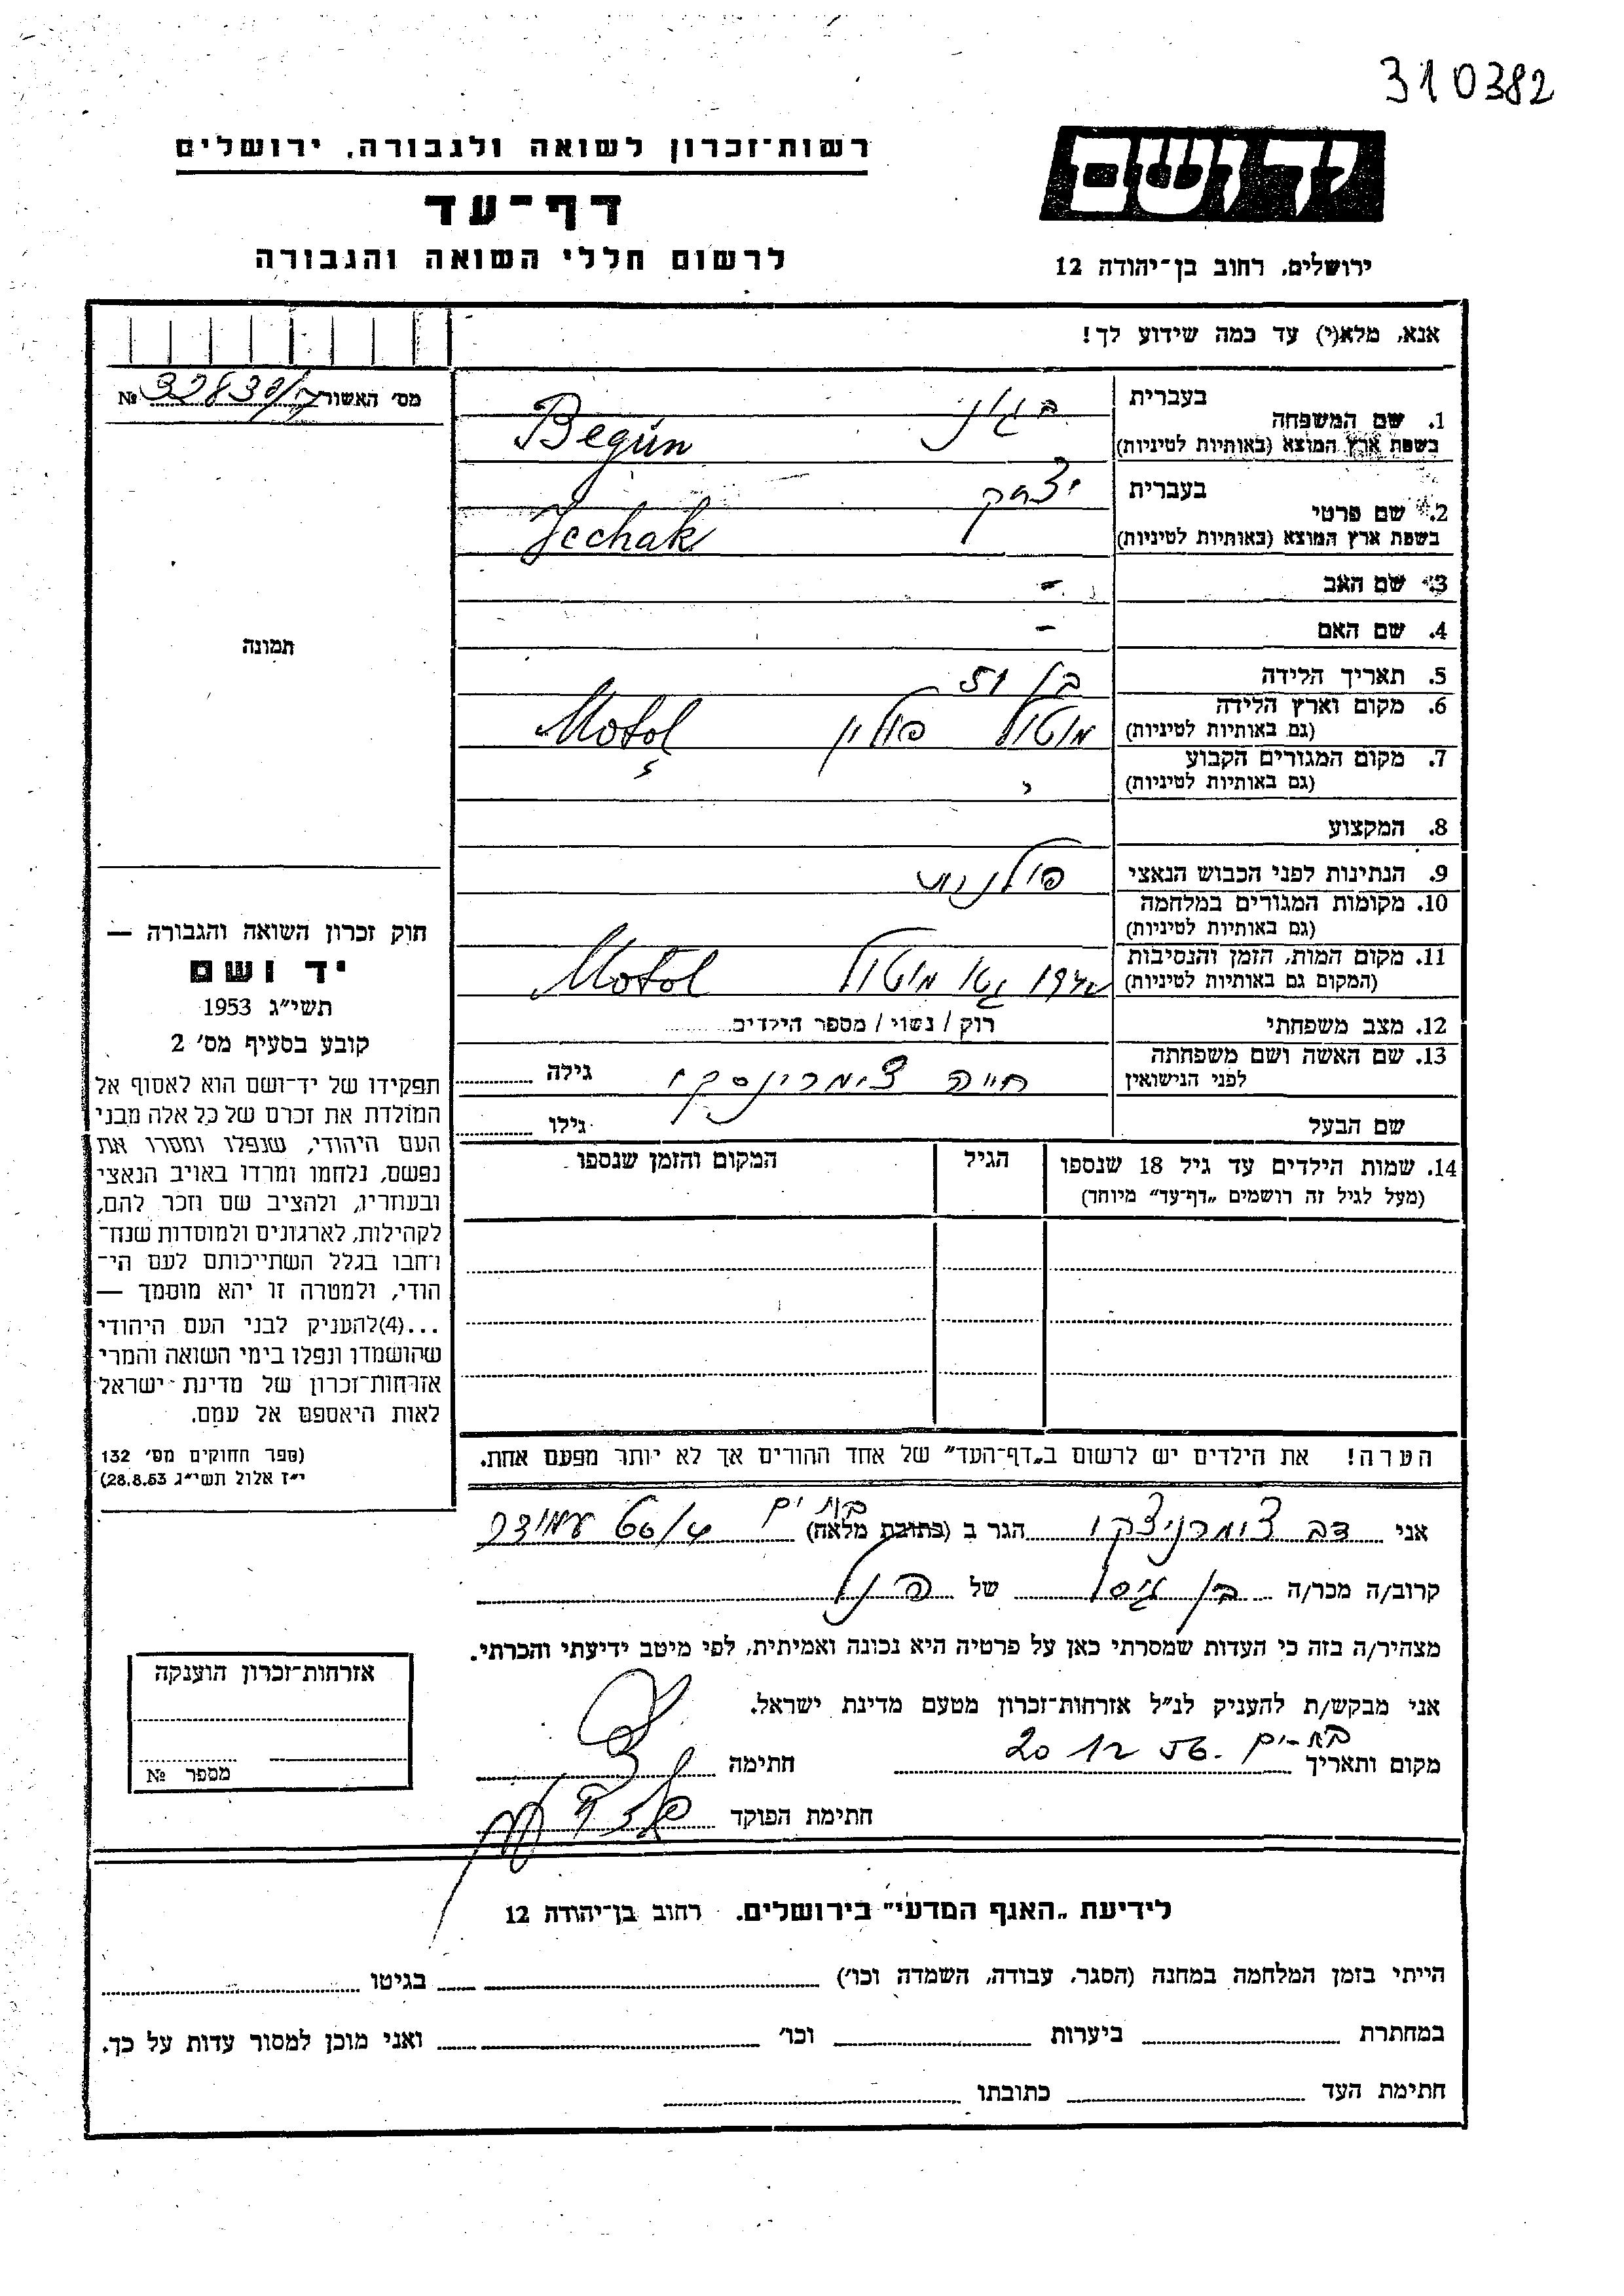 310382
רשות־זכרון לשואה ולגבורה, ירושלים
יד ושם
דף־עד
לרשום חללי השואה והגבורה
ירושלים, רחוב בן־יהודה 12
אנא, מלא(י) עד כמה שידוע לך!
מס׳ האשור №
1. שם המשפחה
בעברית בגון
בשפת ארץ המוצא (באותיות לטיניות) Begun
2. שם פרטי
בעברית יצחק
בשפת ארץ המוצא (באותיות לטיניות) Jechak
3. שם האב -
4. שם האם -
5. תאריך הלידה בן 51
6. מקום וארץ הלידה מוטול פולין Motol
(גם באותיות לטיניות)
7. מקום המגורים הקבוע
(גם באותיות לטיניות)
8. המקצוע
9. הנתינות לפני הכבוש הנאצי פולנית
10. מקומות המגורים במלחמה
(גם באותיות לטיניות)
11. מקום המות, הזמן והנסיבות גטו מוטול Motol
(המקום גם באותיות לטיניות)
12. מצב משפחתי רוק / נשוי / מספר הילדים
13. שם האשה ושם משפחתה חיה צימרינסקי גילה
לפני הנישואין
שם הבעל גילו
14. שמות הילדים עד גיל 18 שנספו הגיל המקום והזמן שנספו
(מעל לגיל זה רושמים „דף־עד״ מיוחד)
הערה! את הילדים יש לרשום ב„דף־העד״ של אחד ההורים אך לא יותר מפעם אחת.
תמונה
חוק זכרון השואה והגבורה —
יד ושם
תשי״ג 1953
קובע בסעיף מס׳ 2
תפקידו של יד־ושם הוא לאסוף אל
המולדת את זכרם של כל אלה מבני
העם היהודי, שנפלו ומסרו את
נפשם, נלחמו ומרדו באויב הנאצי
ובעוזריו, ולהציב שם וזכר להם,
לקהילות, לארגונים ולמוסדות שנח־
רבו בגלל השתייכותם לעם הי־
הודי, ולמטרה זו יהא מוסמך —
...(4)להעניק לבני העם היהודי
שהושמדו ונפלו בימי השואה והמרי
אזרחות־זכרון של מדינת ישראל
לאות היאספם אל עמם.
(ספר החוקים מס׳ 132
י״ז אלול תשי״ג 28.8.53)
אני דב צימרניצקי הגר ב (כתובת מלאה) בת ים עמידר 60/4
קרוב/ה מכר/ה בן גיסו של הנ״ל
מצהיר/ה בזה כי העדות שמסרתי כאן על פרטיה היא נכונה ואמיתית, לפי מיטב ידיעתי והכרתי.
אני מבקש/ת להעניק לנ״ל אזרחות־זכרון מטעם מדינת ישראל.
מקום ותאריך בת-ים 20 12 56 חתימה
חתימת הפוקד
אזרחות־זכרון הוענקה
מספר №
לידיעת „האגף המדעי״ בירושלים. רחוב בן־יהודה 12
הייתי בזמן המלחמה במחנה (הסגר, עבודה, השמדה וכו׳) בגיטו
במחתרת ביערות וכו׳ ואני מוכן למסור עדות על כך.
חתימת העד כתובתו